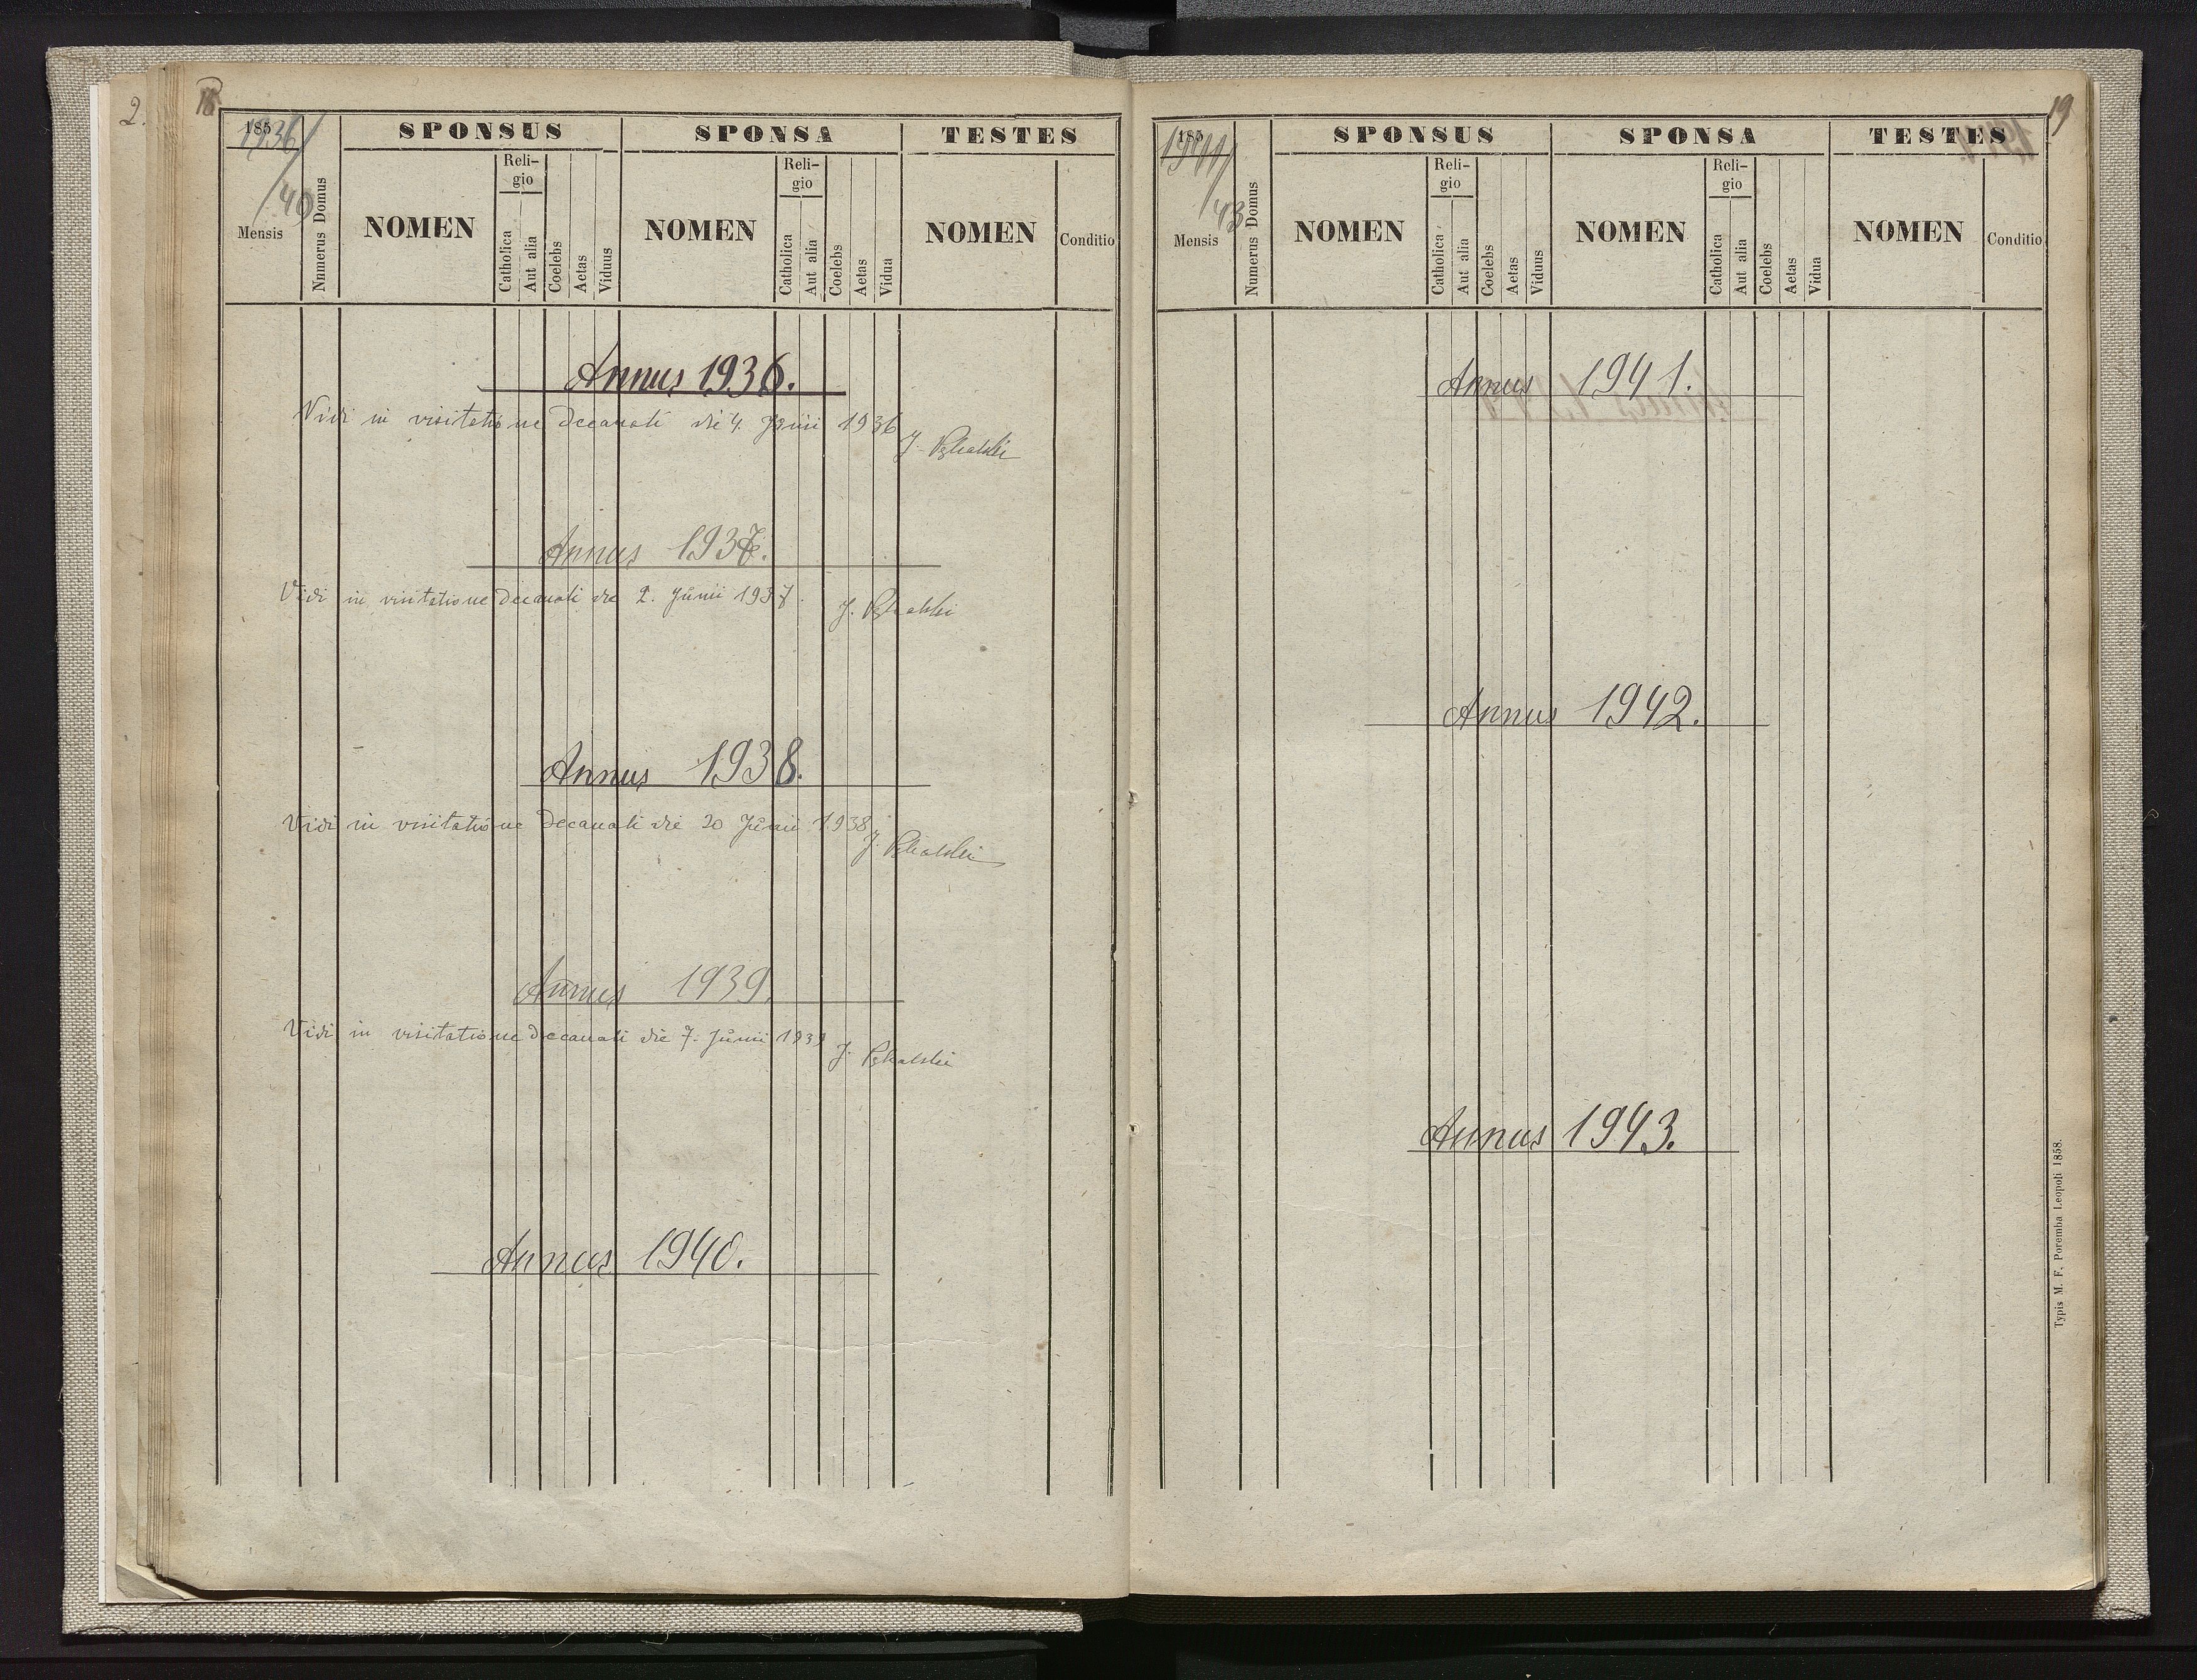 2.
18
185
1936/
/40
Mensis
Nnmerus Domus
SPONSUS
NOMEN
Reli-
gio
Catholica
Aut alia
Coelebs
Aetas
Viduus
SPONSA
NOMEN
Reli-
gio
Catholica
Aut alia
Coelebs
Aetas
Vidua
TESTES
NOMEN
Conditio
Annus 1936.
Vidi in visitatione decanali die 4. Junii 1936
J.
Annus 1937.
Vidi in visitatione decanali die 2. Junii 1937.
J.
Annus 1938.
Vidi in visitatione decanali die 20 Junii 1938
J.
Annus 1939.
Vidi in visitatione decanali die 7. Junii 1939
J.
Annus 1940.
19
185
1941/
/43
Mensis
Numerus Domus
SPONSUS
NOMEN
Reli-
gio
Catholica
Aut alia
Coelebs
Aetas
Viduus
SPONSA
NOMEN
Reli-
gio
Catholica
Aut alia
Coelebs
Aetas
Vidua
TESTES
NOMEN
Conditio
Annus 1941.
Annus 1942.
Annus 1943.
Typis M. F. Poremba Leopoli 1858.